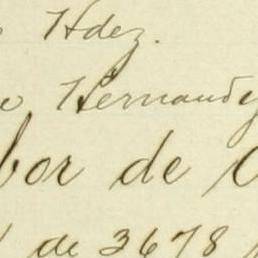 Hdez.
Hernandez
bor de
de 3678